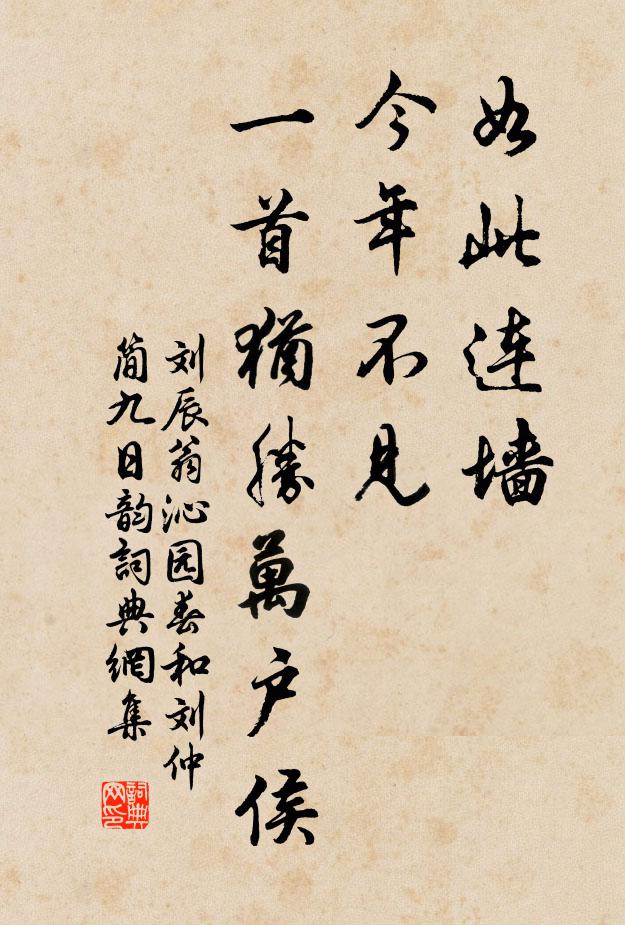 如此连墙
今年不见
一首猶勝萬户侯
刘辰翁沁园春和刘仲
简九日韵詞典網集
詞典
网印